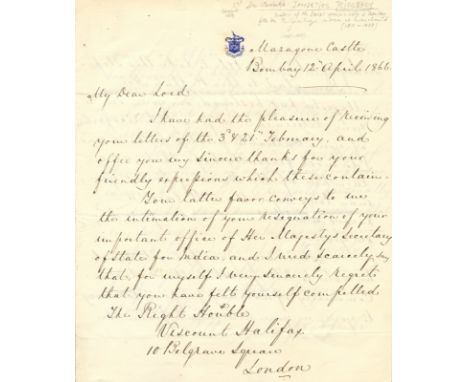 Sir Jamsetjee Jejeebhoy
Mazagone Castle
Bombay 12th April 1866.
My Dear Lord
I have had the pleasure of receiving
your letters of the 3d & 21st February, and
offer you my sincere thanks for your
friendly expressions which these contain.
Your latter favor conveys to me
the intimation of your resignation of your
important office of Her Majestys Secretary
of State for India and I need scarcely say
that for myself I very sincerely regret
that you have felt yourself compelled
The Right Honble
Viscount Halifax
10 Belgrave Square
London